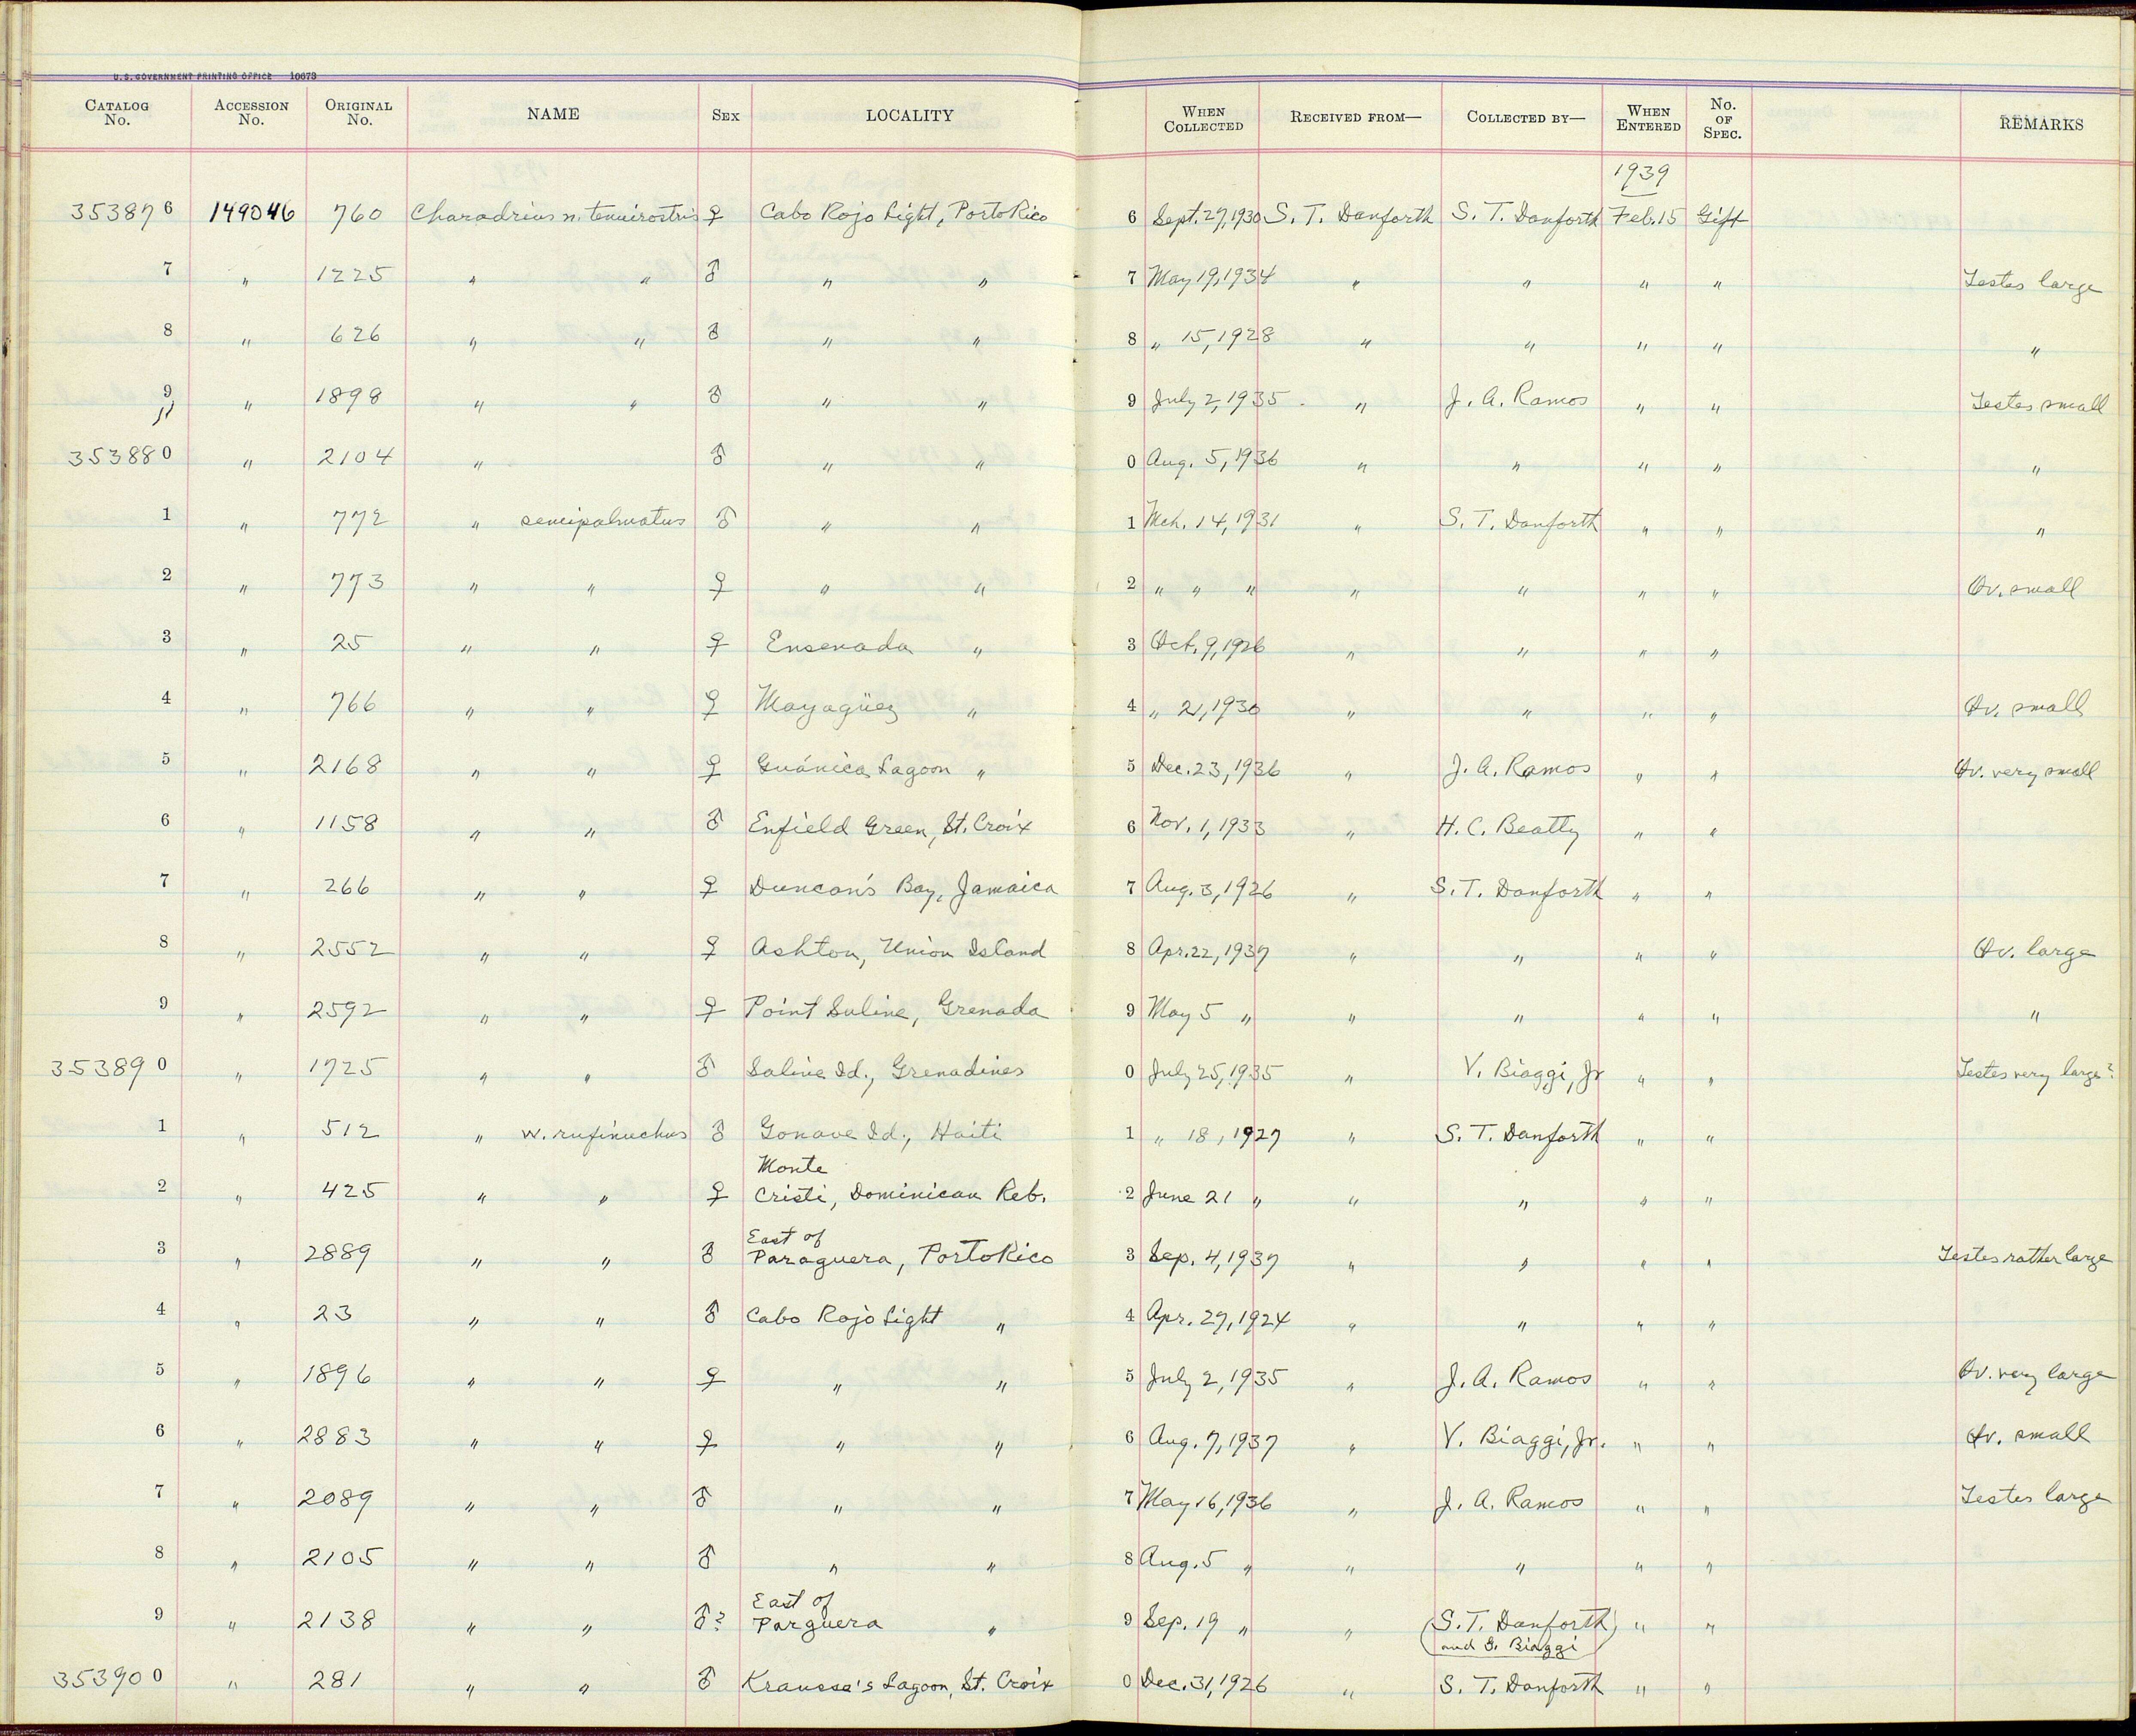 U.S. GOVERNMENT PRINTING OFFICE 10673
CATALOG No. ACCESSION No. ORIGINAL No. NAME SEX LOCALITY WHEN COLLECTED RECEIVED FROM— COLLECTED BY— WHEN ENTERED No. OF SPEC. REMARKS
1939
353876 149046 760 Charadrius n. tenuirostris ♀ Cabo Rojo Light, Porto Rico 6 Sept. 27, 1930 S. T. Danforth S. T. Danforth Feb. 15 Gift
7 " 1225 " " ♂ " " 7 May 19, 1934 " " " " Testes large
8 " 626 " " ♂ " " 8 " 15, 1928 " " " " "
9 " 1898 " " ♂ " " 9 July 2, 1935 " J. A. Ramos " " Testes small
353880 " 2104 " ♂ " " 0 Aug. 5, 1936 " " " " "
1 " 772 " semipalmatus ♂ " " 1 Mch. 14, 1931 " S. T. Danforth " " "
2 " 773 " " ♀ " " 2 " " " " " " " Ov. small
3 " 25 " " ♀ Ensenada " 3 Oct. 9, 1926 " " " "
4 " 766 " " ♀ Mayagüez " 4 " 21, 1930 " " " " Ov. small
5 " 2168 " " ♀ Guánica Lagoon " 5 Dec. 23, 1936 " J. A. Ramos " " Ov. very small
6 " 1158 " " ♂ Enfield Green, St. Croix 6 Nov. 1, 1933 " H. C. Beatty " "
7 " 266 " " ♀ Duncan's Bay, Jamaica 7 Aug. 3, 1926 " S. T. Danforth " "
8 " 2552 " " ♀ Ashton, Union Island 8 Apr. 22, 1937 " " " " Ov. large
9 " 2592 " " ♀ Point Saline, Grenada 9 May 5 " " " " " "
353890 " 1725 " " ♂ Saline Id., Grenadines 0 July 25, 1935 " V. Biaggi, Jr " " Testes very large?
1 " 512 " w. rufinuchus ♂ Gonave Id., Haiti 1 " 18, 1927 " S. T. Danforth " "
Monte
2 " 425 " " ♀ Cristi, Dominican Reb. 2 June 21 " " " " "
East of
3 " 2889 " " ♂ Paraguera, Porto Rico 3 Sep. 4, 1937 " " " " Testes rather large
4 " 23 " " ♂ Cabo Rojo Light " 4 Apr. 27, 1924 " " " "
5 " 1896 " " ♀ " " 5 July 2, 1935 " J. A. Ramos " " Ov. very large
6 " 2883 " " ♀ " " 6 Aug. 7, 1937 " V. Biaggi, Jr. " " Ov. small
7 " 2089 " " ♂ " " 7 May 16, 1936 " J. A. Ramos " " Testes large
8 " 2105 " " ♂ " " 8 Aug. 5 " " " " "
East of
9 " 2138 " " ♂? Parguera " 9 Sep. 19 " " (S. T. Danforth) " "
and G. Biaggi
353900 " 281 " " ♂ Krausse's Lagoon, St. Croix 0 Dec. 31, 1926 " S. T. Danforth " "